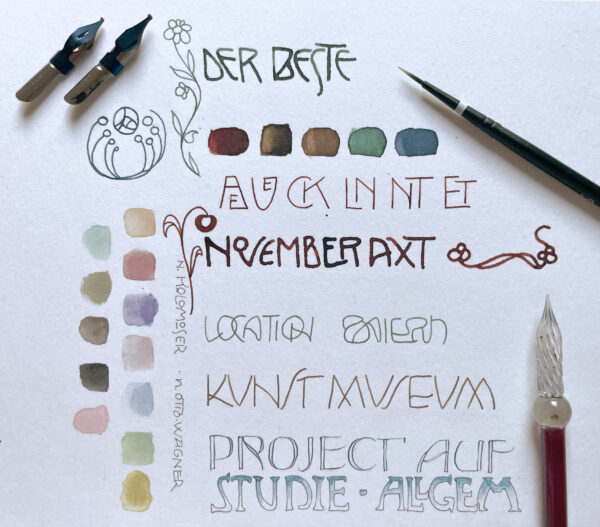 DER BESTE
NOVEMBER AXT
LOCATION
KUNST MUSEUM
PROJECT AUF
STUDIE · ALLGEM
N. HOLOMOSER · N. OTTO WAGNER